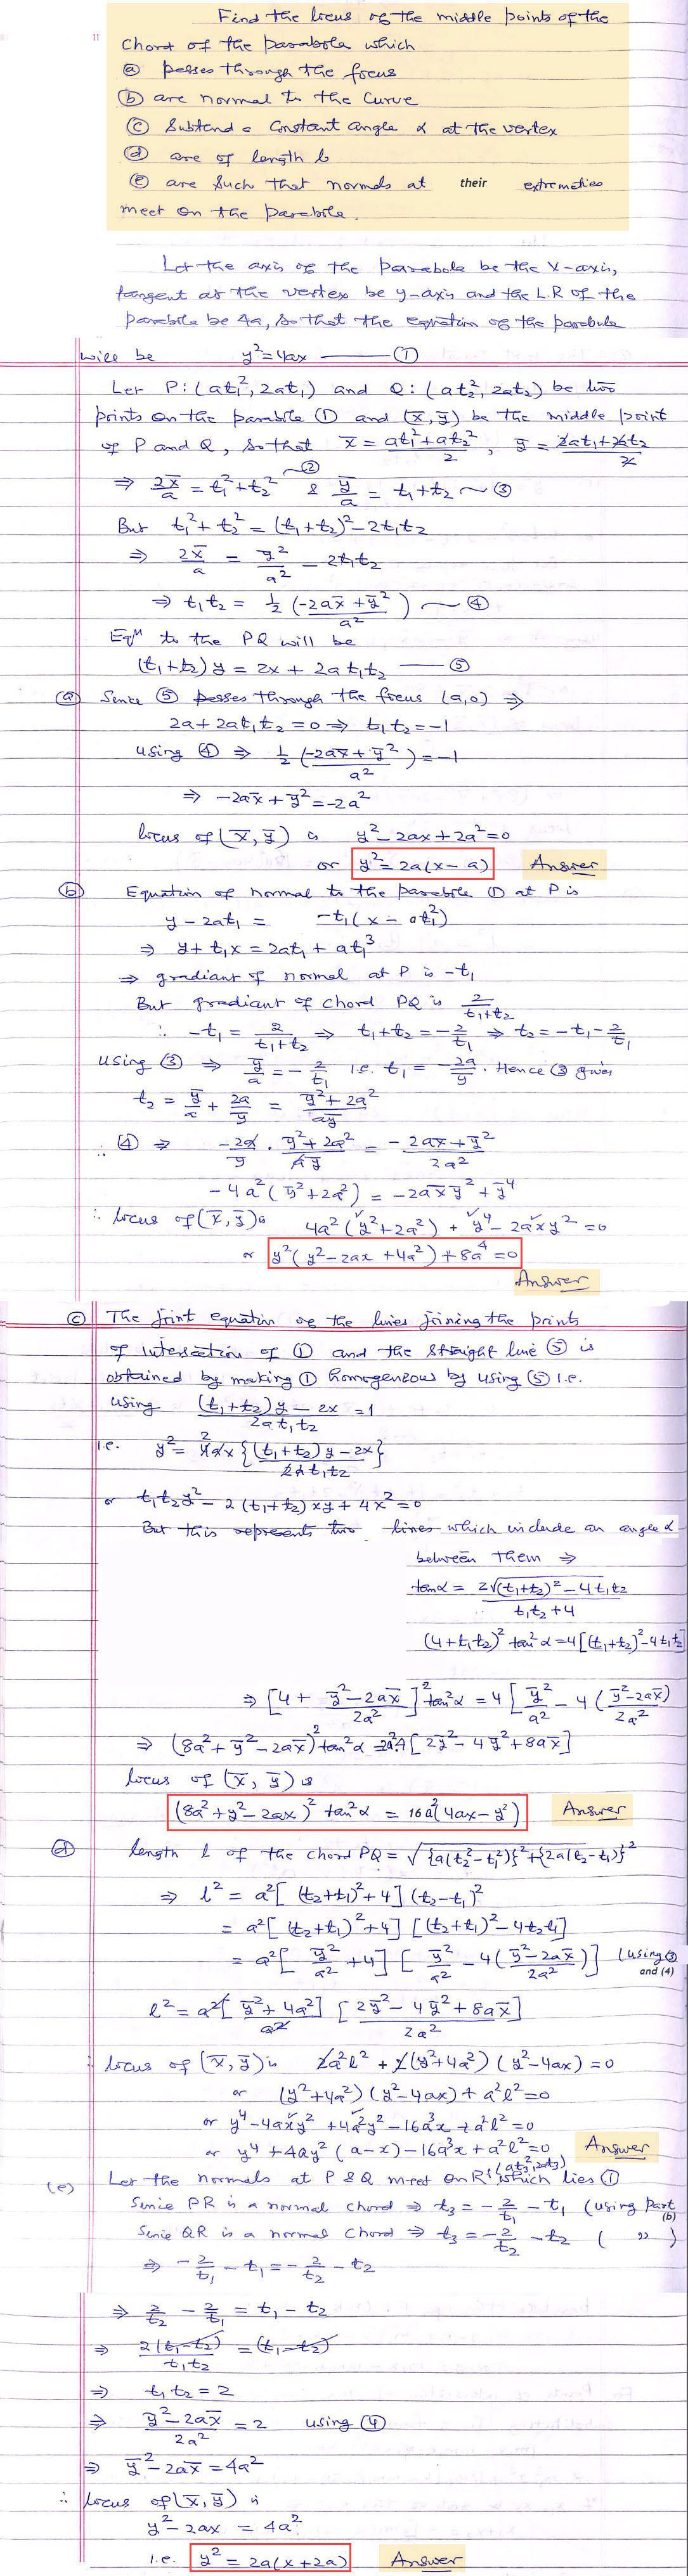 Find the locus of the middle points of the
11 Chord of the parabola which
(a) passes through the focus
(b) are normal to the Curve
(c) Subtend a Constant angle α at the vertex
(d) are of length l
(e) are such that normals at their extremeties
meet on the parabola.
Let the axis of the parabola be the X-axis,
tangent at the vertex be y-axis and the L.R of the
parabola be 4a, so that the equation of the parabola
will be y²=4ax —— (1)
Let P: (at₁², 2at₁) and Q: (at₂², 2at₂) be two
points on the parabola (1) and (x̅, y̅) be the middle point
of P and Q, so that x̅ = (at₁²+at₂²)/2, y̅ = (2at₁+2at₂)/2
⇒ 2x̅/a = t₁²+t₂² ~(2) & y̅/a = t₁+t₂ ~(3)
But t₁²+t₂² = (t₁+t₂)²-2t₁t₂
⇒ 2x̅/a = y̅²/a² - 2t₁t₂
⇒ t₁t₂ = ½ (-2ax̅+y̅²)/a² ~(4)
Eqⁿ to the PQ will be
(t₁+t₂)y = 2x + 2at₁t₂ —— (5)
(a) Since (5) passes through the focus (a,0) ⇒
2a+2at₁t₂=0 ⇒ t₁t₂=-1
using (4) ⇒ ½ (-2ax̅+y̅²)/a² = -1
⇒ -2ax̅+y̅²=-2a²
locus of (x̅, y̅) is y²-2ax+2a²=0
or y²=2a(x-a) Answer
(b) Equation of normal to the parabola (1) at P is
y-2at₁ = -t₁(x-at₁²)
⇒ y+t₁x=2at₁+at₁³
⇒ gradiant of normal at P is -t₁
But gradiant of chord PQ is 2/(t₁+t₂)
∴ -t₁ = 2/(t₁+t₂) ⇒ t₁+t₂=-2/t₁ ⇒ t₂=-t₁-2/t₁
Using (3) ⇒ y̅/a = -2/t₁ i.e. t₁ = -2a/y̅. Hence (3) gives
t₂ = y̅/a + 2a/y̅ = (y̅²+2a²)/ay̅
∴ (4) ⇒ -2a/y̅ · (y̅²+2a²)/ay̅ = (-2ax̅+y̅²)/2a²
-4a²(y̅²+2a²) = -2ax̅y̅²+y̅⁴
∴ locus of (x̅, y̅) is 4a²(y²+2a²)+y⁴-2axy²=0
or y²(y²-2ax+4a²)+8a⁴=0
Answer
(c) The joint equation of the lines joining the points
of intersection of (1) and the straight line (5) is
obtained by making (1) homogeneous by using (5) i.e.
using ((t₁+t₂)y-2x)/2at₁t₂ = 1
i.e. y² = 4ax{(t₁+t₂)y-2x}/2at₁t₂
or t₁t₂y²-2(t₁+t₂)xy+4x²=0
But this represents two lines which include an angle α
between them ⇒
tanα = 2√((t₁+t₂)²-4t₁t₂)/(t₁t₂+4)
(4+t₁t₂)² tan²α=4[(t₁+t₂)²-4t₁t₂]
⇒ [4+ (y̅²-2ax̅)/2a²]² tan²α = 4[y̅²/a² - 4((y̅²-2ax̅)/2a²)
⇒ (8a²+y̅²-2ax̅)² tan²α = 2a²·4[2y̅²-4y̅²+8ax̅]
locus of (x̅, y̅) is
(8a²+y²-2ax)² tan²α = 16a²(4ax-y²) Answer
(d) length l of the chord PQ = √{a(t₂²-t₁²)}²+{2a(t₂-t₁)}²
⇒ l² = a²[(t₂+t₁)²+4](t₂-t₁)²
= a²[(t₂+t₁)²+4][(t₂+t₁)²-4t₂t₁]
= a²[y̅²/a²+4][y̅²/a² - 4((y̅²-2ax̅)/2a²)] (using (3)
and (4)
l² = a²[y̅²+4a²]/a² [2y̅²-4y̅²+8ax̅]/2a²
∴ locus of (x̅, y̅) is 2a²l²+2(y²+4a²)(y²-4ax)=0
or (y²+4a²)(y²-4ax)+a²l²=0
or y⁴-4axy²+4a²y²-16a³x+a²l²=0
or y⁴+4ay²(a-x)-16a³x+a²l²=0 Answer
(e) Let the normals at P & Q meet on R:(at₃², 2at₃) which lies (1)
Since PR is a normal chord ⇒ t₃=-2/t₁-t₁ (using Part (b)
Since QR is a normal Chord ⇒ t₃=-2/t₂-t₂ ( ” )
⇒ -2/t₁-t₁=-2/t₂-t₂
⇒ 2/t₂-2/t₁=t₁-t₂
⇒ 2(t₁-t₂)/t₁t₂=(t₁-t₂)
⇒ t₁t₂=2
⇒ (y̅²-2ax̅)/2a²=2 using (4)
⇒ y̅²-2ax̅=4a²
∴ locus of (x̅, y̅) is
y²-2ax = 4a²
i.e. y²=2a(x+2a) Answer